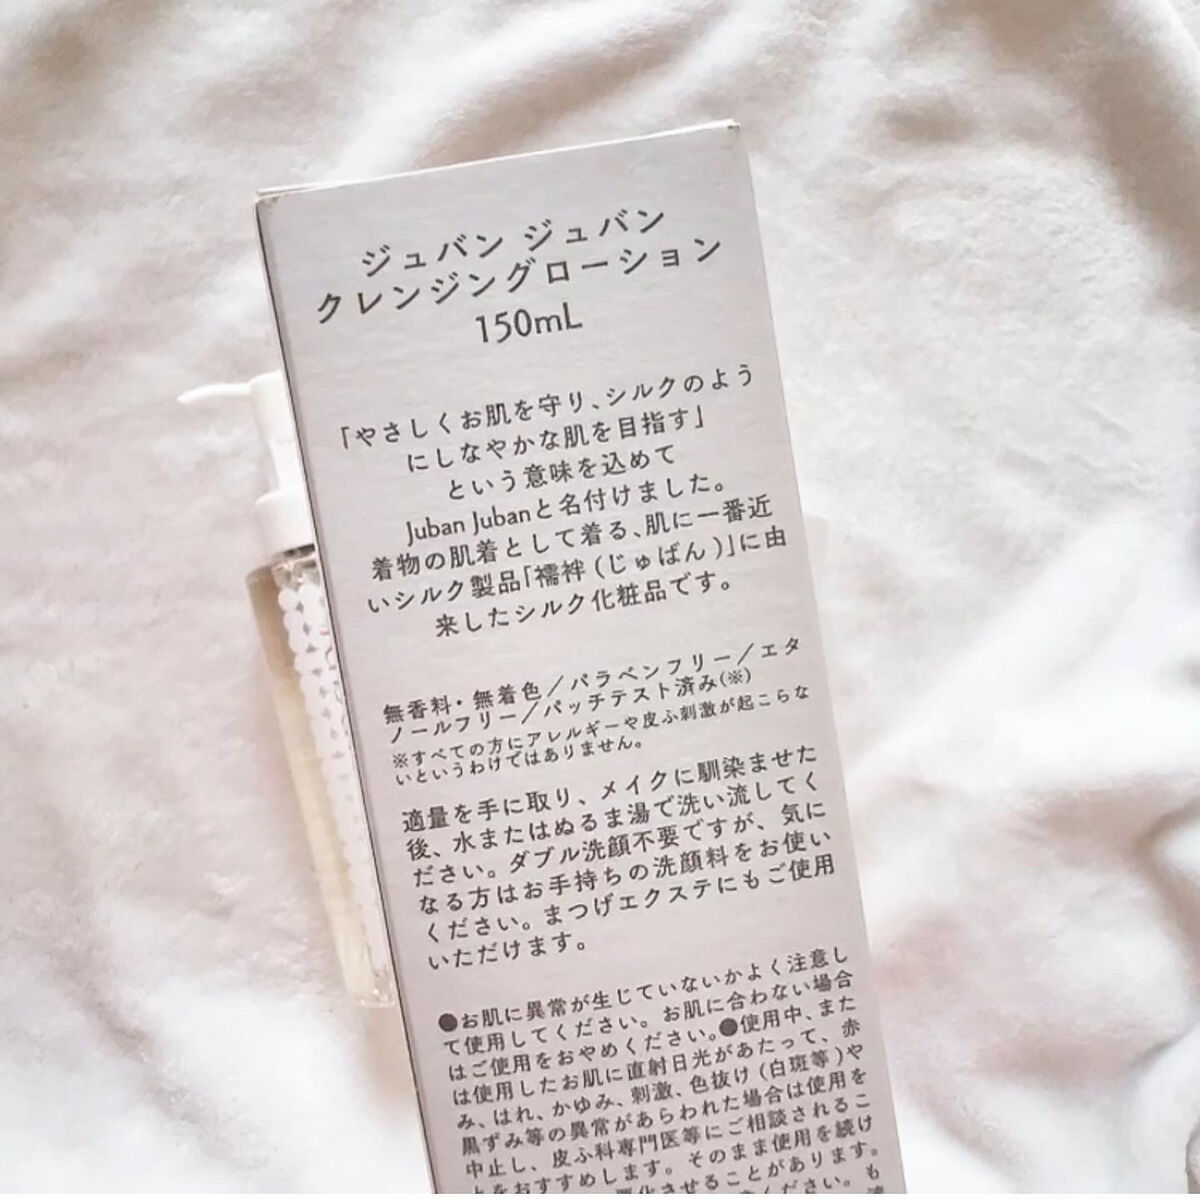 ジュバン ジュバン
クレンジングローション
150mL
「やさしくお肌を守り、シルクのよう
にしなやかな肌を目指す」
という意味を込めて
Juban Jubanと名付けました。
着物の肌着として着る、肌に一番近
いシルク製品「襦袢(じゅばん)」に由
来したシルク化粧品です。
無香料・無着色/パラベンフリー/エタ
ノールフリー/パッチテスト済み(※)
※すべての方にアレルギーや皮ふ刺激が起こらな
いというわけではありません。
適量を手に取り、メイクに馴染ませた
後、水またはぬるま湯で洗い流してく
ださい。ダブル洗顔不要ですが、気に
なる方はお手持ちの洗顔料をお使い
ください。まつげエクステにもご使用
いただけます。
●お肌に異常が生じていないかよく注意し
て使用してください。お肌に合わない場合
はご使用をおやめください。●使用中、また
は使用したお肌に直射日光があたって、赤
み、はれ、かゆみ、刺激、色抜け(白斑等)や
黒ずみ等の異常があらわれた場合は使用を
中止し、皮ふ科専門医等にご相談されるこ
とをおすすめします。そのまま使用を続け
悪化させることがあります。
ください。も